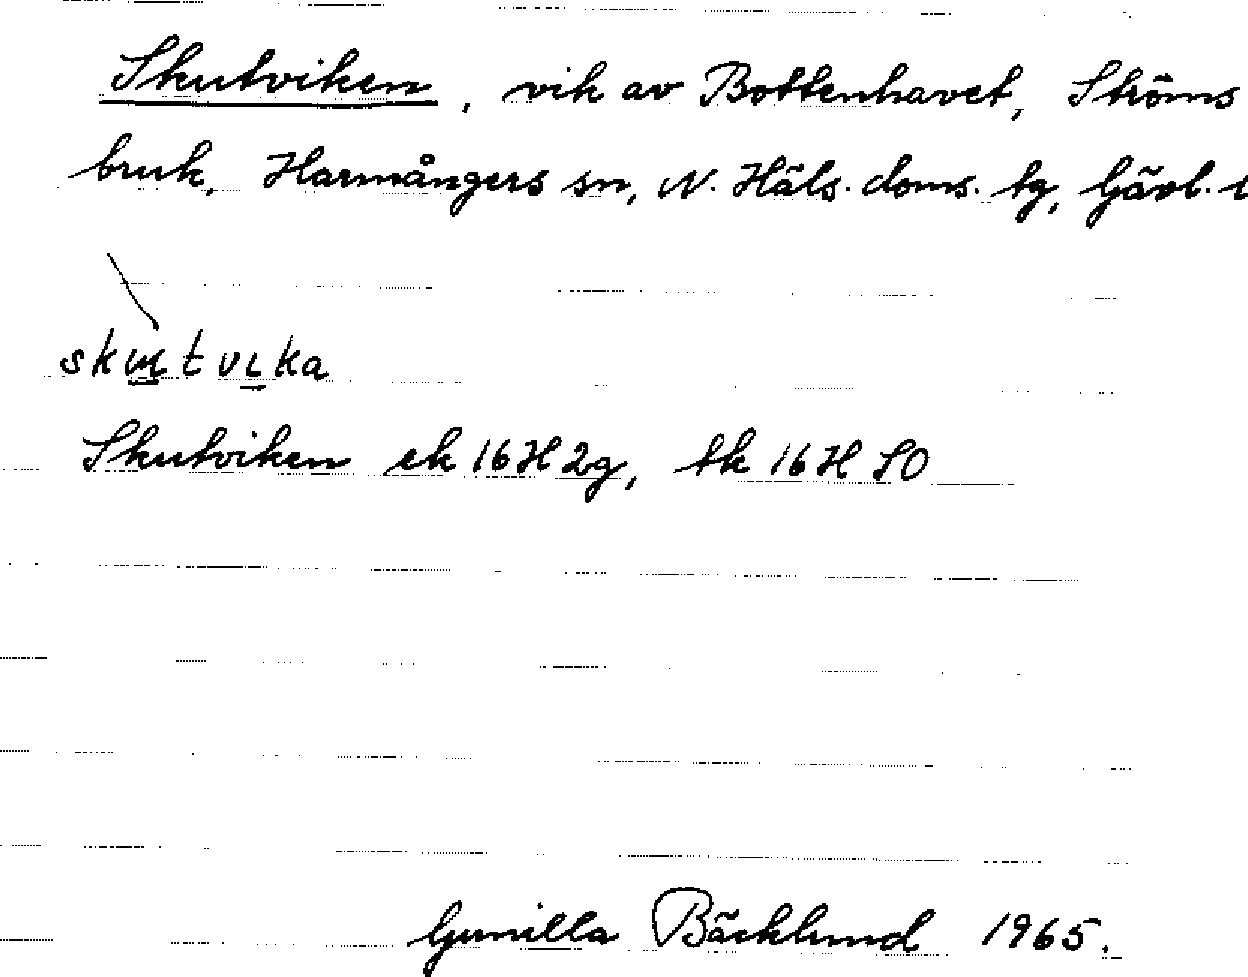 Skutviken, vik av Bottenhavet, Ströms
bruk, Harmångers sn, N. Häls. doms. tg, Gävl. l
skɯtvɩka
Skutviken ek 16H2g, tk 16H SO
Gunilla Bäcklund 1965.